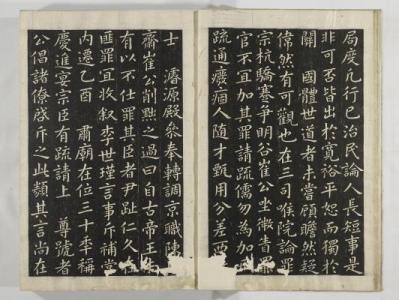 局度凡行己治民論人長短事是
非可否皆出於寬裕平恕而獨於
關 國體世道者未嘗顧瞻然疑
偉然有可觀也在三司喉院論罪
宗杭驕蹇爭明谷崔公坐微眚罪
官不宜加其罪請疏儒勿爲加
疏通癈痼人隨才甄用分差西
士 濬源殿參奉轉調京職陳
齋崔公削黜之過曰自古帝王
有以不仕罪其臣者尹趾仁久在
匪罪宜收敘李世瑾言事斥補當
內遷乙酉 肅廟在位三十季稱
慶進宴宗臣有疏請上 尊號者
公倡諸僚啟斥之此類其言尚在